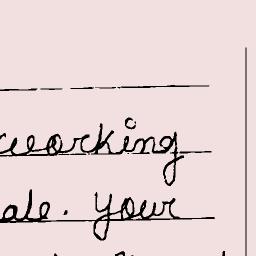 working
ale. your